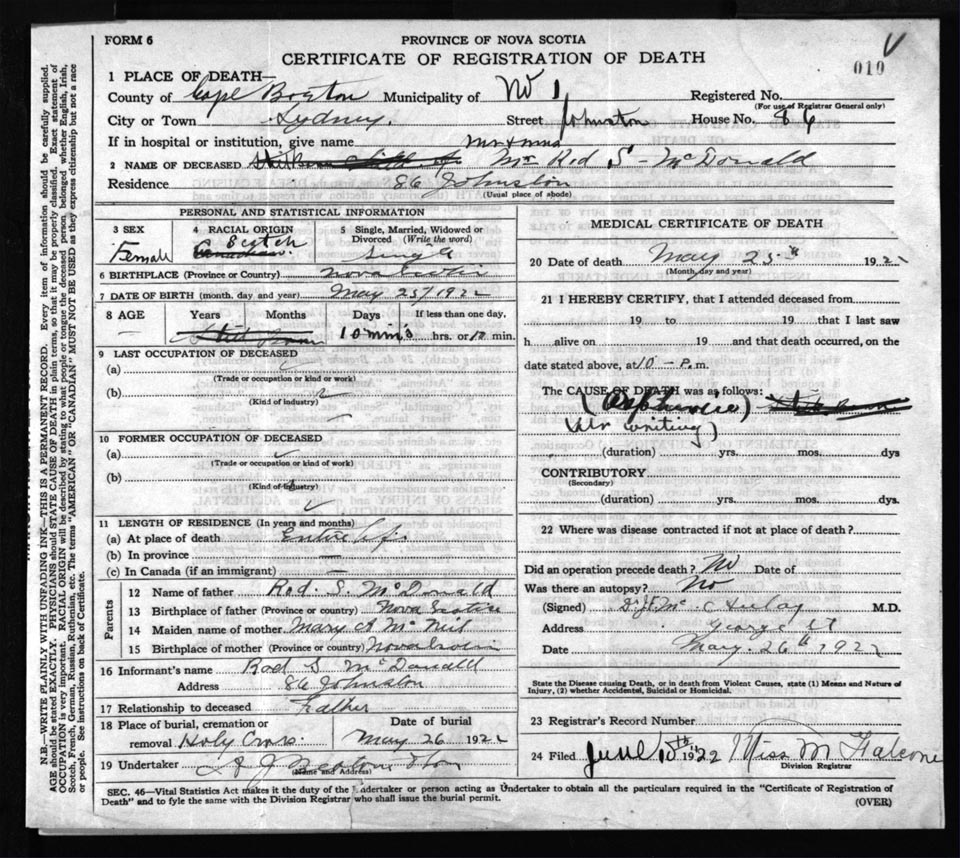 FORM 6
PROVINCE OF NOVA SCOTIA
CERTIFICATE OF REGISTRATION OF DEATH
010
1 PLACE OF DEATH—
County of Cape Breton Municipality of No 1 Registered No.
(For use of Registrar General only)
City or Town Sydney. Street Johnston House No. 86
If in hospital or institution, give name
2 NAME OF DECEASED Mr Rod S - McDonald
Residence 86 Johnston
(Usual place of abode)
PERSONAL AND STATISTICAL INFORMATION
3 SEX
Female
4 RACIAL ORIGIN
Scotch
5 Single, Married, Widowed or Divorced (Write the word)
Single
6 BIRTHPLACE (Province or Country) Nova Scotia
7 DATE OF BIRTH (month, day and year) May 25/1922
8 AGE Years Months Days If less than one day,
10 min's hrs. or 10 min.
9 LAST OCCUPATION OF DECEASED
(a)
(Trade or occupation or kind of work)
(b)
(Kind of industry)
10 FORMER OCCUPATION OF DECEASED
(a)
(Trade or occupation or kind of work)
(b)
(Kind of industry)
11 LENGTH OF RESIDENCE (In years and months)
(a) At place of death Entire life
(b) In province —
(c) In Canada (if an immigrant) —
Parents
12 Name of father Rod. S. McDonald
13 Birthplace of father (Province or country) Nova Scotia
14 Maiden name of mother Mary A McNeil
15 Birthplace of mother (Province or country) Nova Scotia
16 Informant's name Rod S McDonald
Address 86 Johnston
17 Relationship to deceased Father
18 Place of burial, cremation or removal Holy Cross
Date of burial May 26 1922
19 Undertaker
(Name and Address)
MEDICAL CERTIFICATE OF DEATH
20 Date of death May 25th 1922
(Month, day and year)
21 I HEREBY CERTIFY, that I attended deceased from
19 to 19 that I last saw
h alive on 19 and that death occurred, on the
date stated above, at 10 - P. m.
The CAUSE OF DEATH was as follows:
(Asphyxia)
(Dr writing)
(duration) yrs. mos. dys
CONTRIBUTORY
(Secondary)
(duration) yrs. mos. dys.
22 Where was disease contracted if not at place of death?
Did an operation precede death? No Date of
Was there an autopsy? No
(Signed) M.D.
Address George St
Date May. 26th 1922
State the Disease causing Death, or in death from Violent Causes, state (1) Means and Nature of
Injury, (2) whether Accidental, Suicidal or Homicidal.
23 Registrar's Record Number
24 Filed June 10th 1922 Miss M Falcone
Division Registrar
SEC. 46—Vital Statistics Act makes it the duty of the Undertaker or person acting as Undertaker to obtain all the particulars required in the "Certificate of Registration of
Death" and to fyle the same with the Division Registrar who shall issue the burial permit.
(OVER)
N.B.—WRITE PLAINLY WITH UNFADING INK—THIS IS A PERMANENT RECORD. Every item of information should be carefully supplied.
AGE should be stated EXACTLY. PHYSICIANS should STATE CAUSE OF DEATH in plain terms, so that it may be properly classified. Exact statement of
OCCUPATION is very important. RACIAL ORIGIN will be described by stating to what people or tongue the deceased person belonged whether English, Irish,
Scotch, French, German, Russian, Ruthenian, etc. The terms "AMERICAN" OR "CANADIAN" MUST NOT BE USED as they express citizenship but not a race
or people. See instructions on back of Certificate.